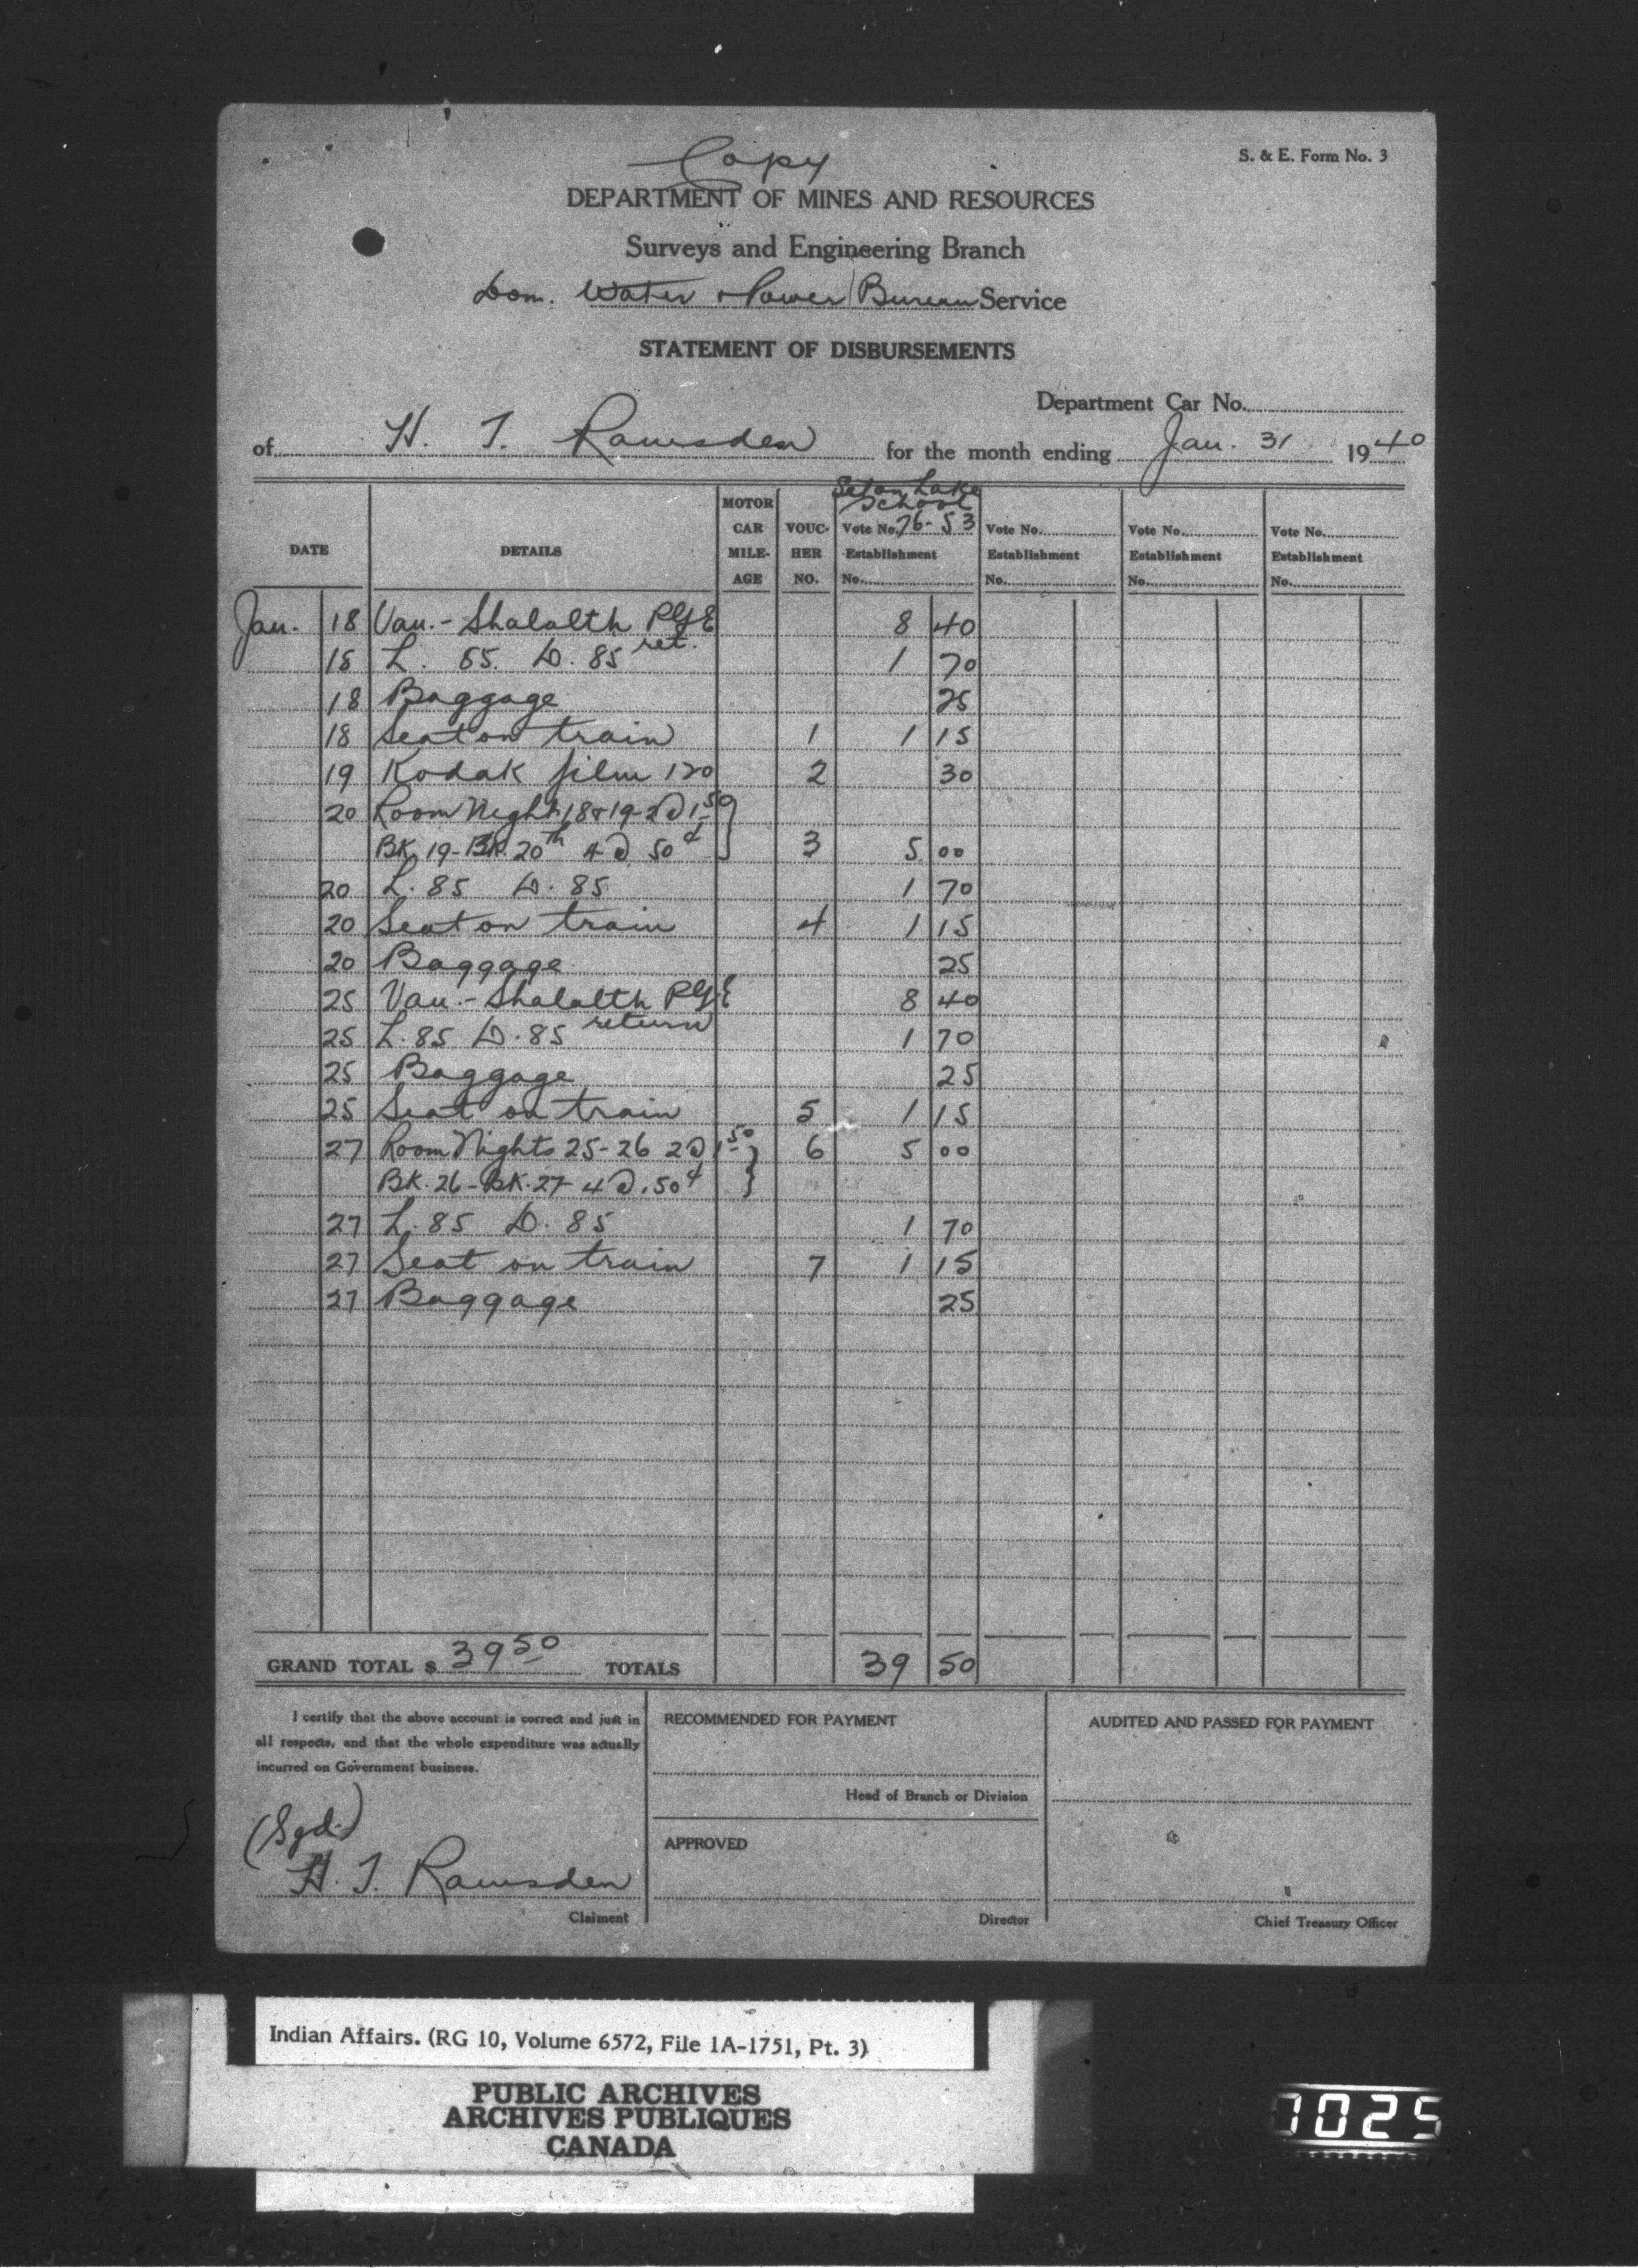 Copy
S. & E. Form No. 3
DEPARTMENT OF MINES AND RESOURCES
Surveys and Engineering Branch
Dom. Water & Power Bureau Service
STATEMENT OF DISBURSEMENTS
Department Car No.
of H. T. Ramsden for the month ending Jan. 31 1940
DATE DETAILS MOTOR CAR MILE-AGE VOUC-HER NO. Seton Lake School Vote No. 76-53 Establishment No. Vote No. Establishment No. Vote No. Establishment No. Vote No. Establishment No.
Jan. 18 Van.- Shalalth PGE ret. 8 40
18 L. 85. D. 85 1 70
18 Baggage 25
18 Seat on train 1 1 15
19 Kodak film 120 2 30
20 Room Night 18&19-2@1.50 }
BK. 19-BK. 20th 4@ 50¢ 3 5 00
20 L. 85 D. 85 1 70
20 Seat on train 4 1 15
20 Baggage 25
25 Van.- Shalalth PGE return 8 40
25 L. 85 D. 85 1 70
25 Baggage 25
25 Seat on train 5 1 15
27 Room Nights 25-26 2@1.50 } 6 5 00
BK. 26-BK. 27- 4@.50¢ }
27 L. 85 D. 85 1 70
27 Seat on train 7 1 15
27 Baggage 25
GRAND TOTAL $ 39 50 TOTALS 39 50
I certify that the above account is correct and just in
all respects, and that the whole expenditure was actually
incurred on Government business.
(Sgd.)
H. T. Ramsden
Claiment
RECOMMENDED FOR PAYMENT
Head of Branch or Division
APPROVED
Director
AUDITED AND PASSED FOR PAYMENT
Chief Treasury Officer
Indian Affairs. (RG 10, Volume 6572, File 1A-1751, Pt. 3)
PUBLIC ARCHIVES
ARCHIVES PUBLIQUES
CANADA
1025